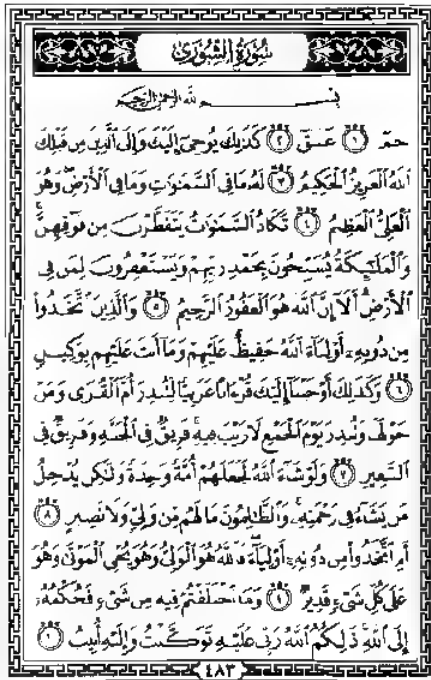 سُورَةُ الشُّورَىٰ
بِسْمِ اللَّهِ الرَّحْمَٰنِ الرَّحِيمِ
حمٓ ۝١ عٓسٓقٓ ۝٢ كَذَٰلِكَ يُوحِىٓ إِلَيْكَ وَإِلَى ٱلَّذِينَ مِن قَبْلِكَ
ٱللَّهُ ٱلْعَزِيزُ ٱلْحَكِيمُ ۝٣ لَهُۥ مَا فِى ٱلسَّمَٰوَٰتِ وَمَا فِى ٱلْأَرْضِ وَهُوَ
ٱلْعَلِىُّ ٱلْعَظِيمُ ۝٤ تَكَادُ ٱلسَّمَٰوَٰتُ يَتَفَطَّرْنَ مِن فَوْقِهِنَّ
وَٱلْمَلَٰٓئِكَةُ يُسَبِّحُونَ بِحَمْدِ رَبِّهِمْ وَيَسْتَغْفِرُونَ لِمَن فِى
ٱلْأَرْضِ أَلَآ إِنَّ ٱللَّهَ هُوَ ٱلْغَفُورُ ٱلرَّحِيمُ ۝٥ وَٱلَّذِينَ ٱتَّخَذُوا۟
مِن دُونِهِۦٓ أَوْلِيَآءَ ٱللَّهُ حَفِيظٌ عَلَيْهِمْ وَمَآ أَنتَ عَلَيْهِم بِوَكِيلٍ
۝٦ وَكَذَٰلِكَ أَوْحَيْنَآ إِلَيْكَ قُرْءَانًا عَرَبِيًّا لِّتُنذِرَ أُمَّ ٱلْقُرَىٰ وَمَنْ
حَوْلَهَا وَتُنذِرَ يَوْمَ ٱلْجَمْعِ لَا رَيْبَ فِيهِ فَرِيقٌ فِى ٱلْجَنَّةِ وَفَرِيقٌ فِى
ٱلسَّعِيرِ ۝٧ وَلَوْ شَآءَ ٱللَّهُ لَجَعَلَهُمْ أُمَّةً وَٰحِدَةً وَلَٰكِن يُدْخِلُ
مَن يَشَآءُ فِى رَحْمَتِهِۦ وَٱلظَّٰلِمُونَ مَا لَهُم مِّن وَلِىٍّ وَلَا نَصِيرٍ ۝٨
أَمِ ٱتَّخَذُوا۟ مِن دُونِهِۦٓ أَوْلِيَآءَ فَٱللَّهُ هُوَ ٱلْوَلِىُّ وَهُوَ يُحْىِ ٱلْمَوْتَىٰ وَهُوَ
عَلَىٰ كُلِّ شَىْءٍ قَدِيرٌ ۝٩ وَمَا ٱخْتَلَفْتُمْ فِيهِ مِن شَىْءٍ فَحُكْمُهُۥٓ
إِلَى ٱللَّهِ ذَٰلِكُمُ ٱللَّهُ رَبِّى عَلَيْهِ تَوَكَّلْتُ وَإِلَيْهِ أُنِيبُ ۝١٠
٤٨٣